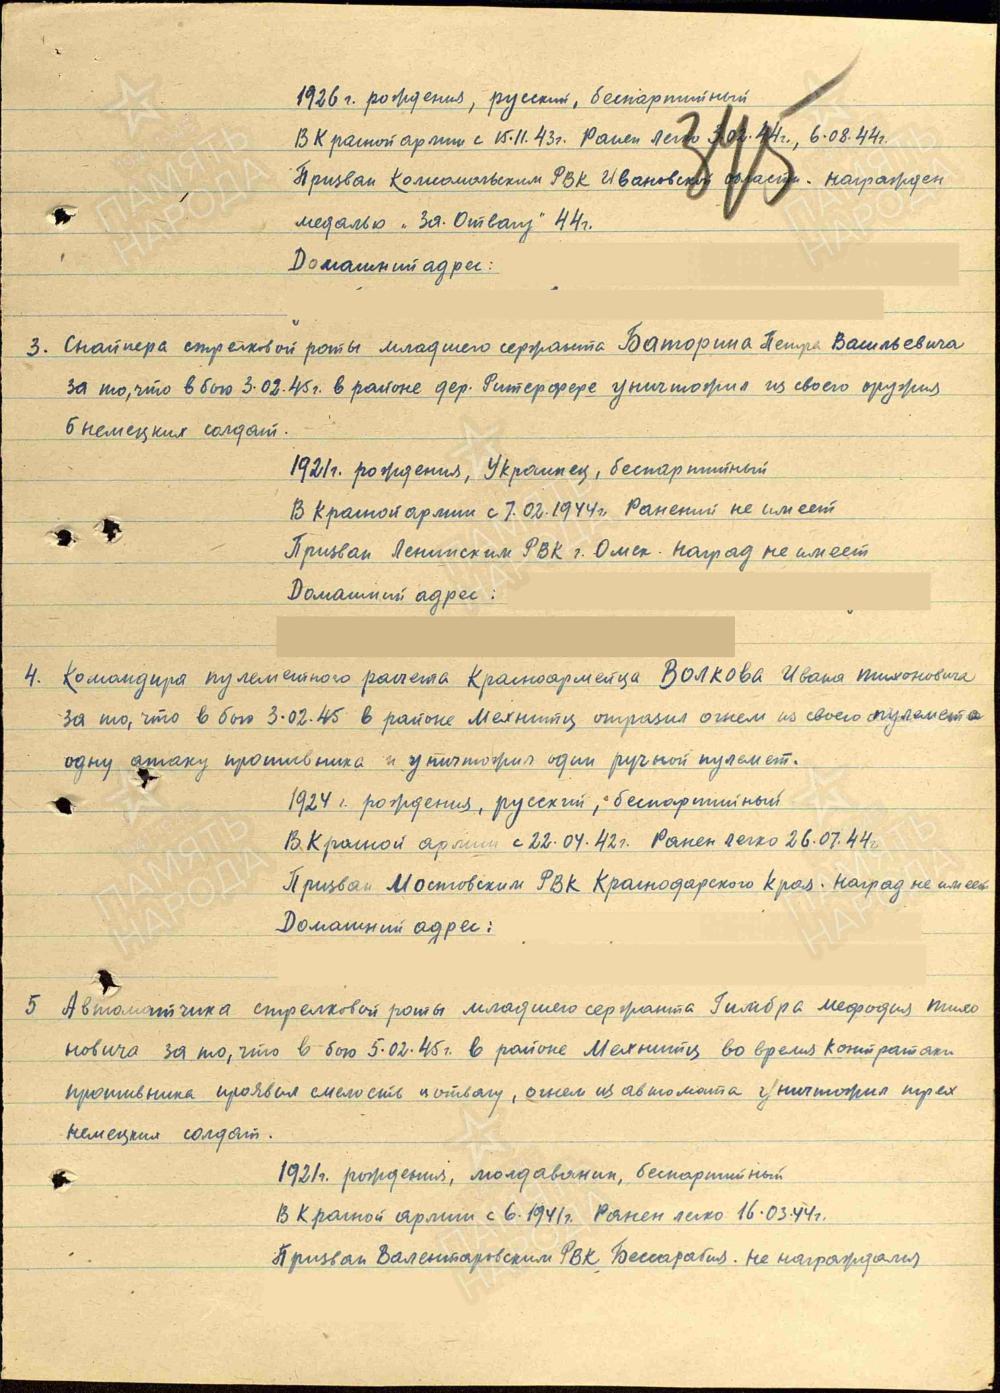 345
1926 г. рождения, русский, беспартийный
В Красной армии с 15.11.43г. Ранен легко 3.02.44г., 6.08.44г.
Призван Комсомольским РВК Ивановской области. Награжден
медалью „За Отвагу" 44г.
Домашний адрес:
3. Снайпера стрелковой роты младшего сержанта Баторина Петра Васильевича
за то, что в бою 3.02.45г. в районе дер. Ритерфере уничтожил из своего оружия
6 немецких солдат.
1921г. рождения, Украинец, беспартийный
В Красной армии с 7.02.1944г. Ранений не имеет
Призван Ленинским РВК г. Омск. Наград не имеет
Домашний адрес:
4. Командира пулеметного расчета Красноармейца Волкова Ивана Тихоновича
за то, что в бою 3.02.45 в районе Мехнитц отразил огнем из своего пулемета
одну атаку противника и уничтожил один ручной пулемет.
1924 г. рождения, русский, беспартийный
В Красной армии с 22.04.42г. Ранен легко 26.07.44г.
Призван Мостовским РВК Краснодарского края. Наград не имеет
Домашний адрес:
5 Автоматчика стрелковой роты младшего сержанта Гимбра Мефодия Тихо
новича за то, что в бою 5.02.45г. в районе Мехнитц во время контратаки
противника проявил смелость и отвагу, огнем из автомата уничтожил трех
немецких солдат.
1921г. рождения, молдаванин, беспартийный
В Красной армии с 6.1941г. Ранен легко 16.03.44г.
Призван Валентаровским РВК Бессарабия. Не награждался
ПАМЯТЬ
НАРОДА